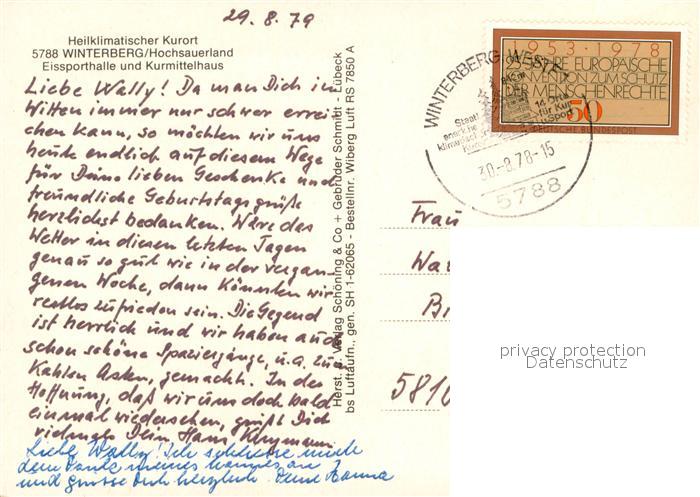 29.8.79
Heilklimatischer Kurort
5788 WINTERBERG/Hochsauerland
Eissporthalle und Kurmittelhaus
Liebe Wally! Da man Dich in
Witten immer nur schwer errei
chen kann, so möchten wir uns
heute endlich auf diesem Wege
für Deine lieben Geschenke und
freundliche Geburtstagsgrüße
herzlichst bedanken. Wäre das
Wetter in diesen letzten Tagen
genau so gut wie in der vergan
genen Woche, dann könnten wir
restlos zufrieden sein. Die Gegend
ist herrlich und wir haben auch
schon schöne Spaziergänge, u.a. zum
Kahlen Asten, gemacht. In der
Hoffnung, daß wir uns doch bald
einmal wiedersehen, grüßt Dich
vielmals Dein Hans
Liebe Wally! Ich schliesse mich
dem Danke meines Mannes an
und grüsse Dich herzlich. Deine Hanna
Herst. u. Verlag Schöning & Co + Gebrüder Schmidt - Lübeck
bs Luftaufn., gen. SH 1-62065 - Bestellnr. Wiberg Luft RS 7850 A
1953 · 1978
EUROPÄISCHE
KONVENTION ZUM SCHUTZ
DER MENSCHENRECHTE
50
DEUTSCHE BUNDESPOST
WINTERBERG, WESTF
30.-8.78-15
5788
Frau
Wa
B
5810
privacy protection
Datenschutz